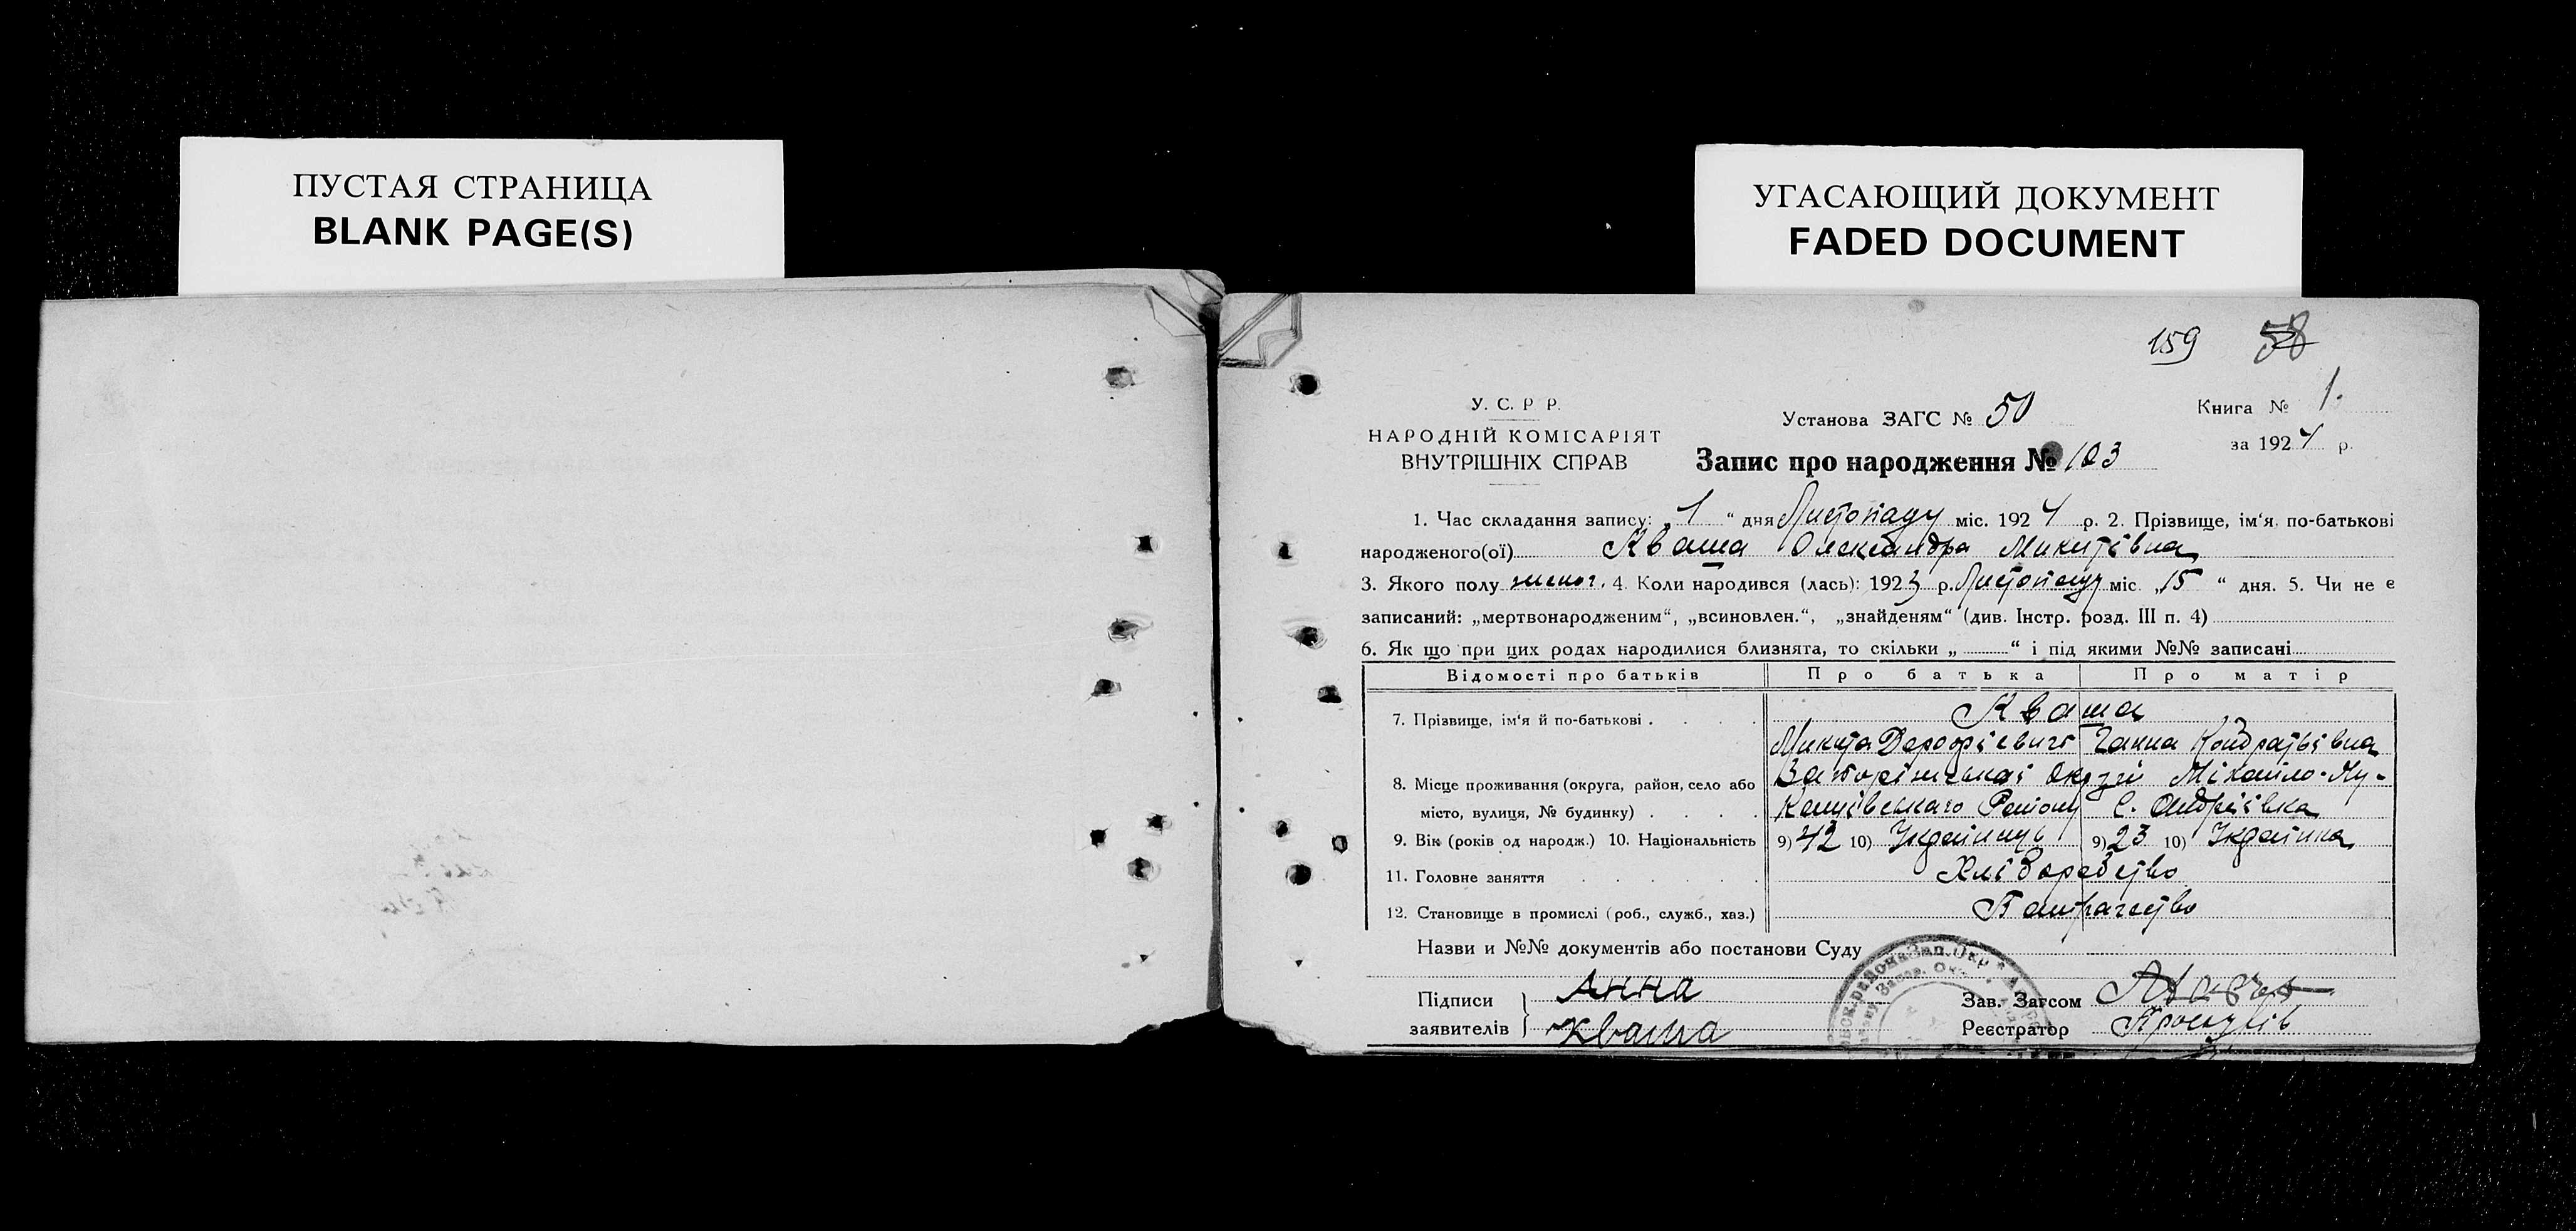 ПУСТАЯ СТРАНИЦА
BLANK PAGE(S)
УГАСАЮЩИЙ ДОКУМЕНТ
FADED DOCUMENT
159 58
У. С. Р Р.
НАРОДНІЙ КОМІСАРІЯТ
ВНУТРІШНІХ СПРАВ
Установа ЗАГС № 50
Запис про народження № 103
Книга № 1.
за 1924 р.
1. Час складання запису: „1“ дня Листопаду міс. 1924 р. 2. Прізвище, ім‘я, по-батькові
народженого(ої) Кваша Олександра Микитівна
3. Якого полу жіноч. 4. Коли народився (лась): 1923 р. Листопаду міс. „15“ дня. 5. Чи не є
записаний: „мертвонародженим“, „всиновлен.“, „знайденям“ (див. Інстр. розд. III п. 4)
6. Як що при цих родах народилися близнята, то скільки „ “ і під якими №№ записані
Відомості про батьків Про батька Про матір
7. Прізвище, ім‘я й по-батькові . Кваша
Микита Дорофієвич Ганна Кондратьівна
8. Місце проживання (округа, район, село або Запоріжської Округи Міхайло-Лу-
місто, вулиця, № будинку) . кашівського Району с. Андріївка
9. Вік (років од народж.) 10. Національність 9) 42 10) Українець 9) 23 10) Українка
11. Головне заняття Хліборобство
12. Становище в промислі (роб., служб., хаз.) Батрачество
Назви и №№ документів або постанови Суду
Підписи заявителів } Анна
Кваша
Зав. Загсом
Реєстратор